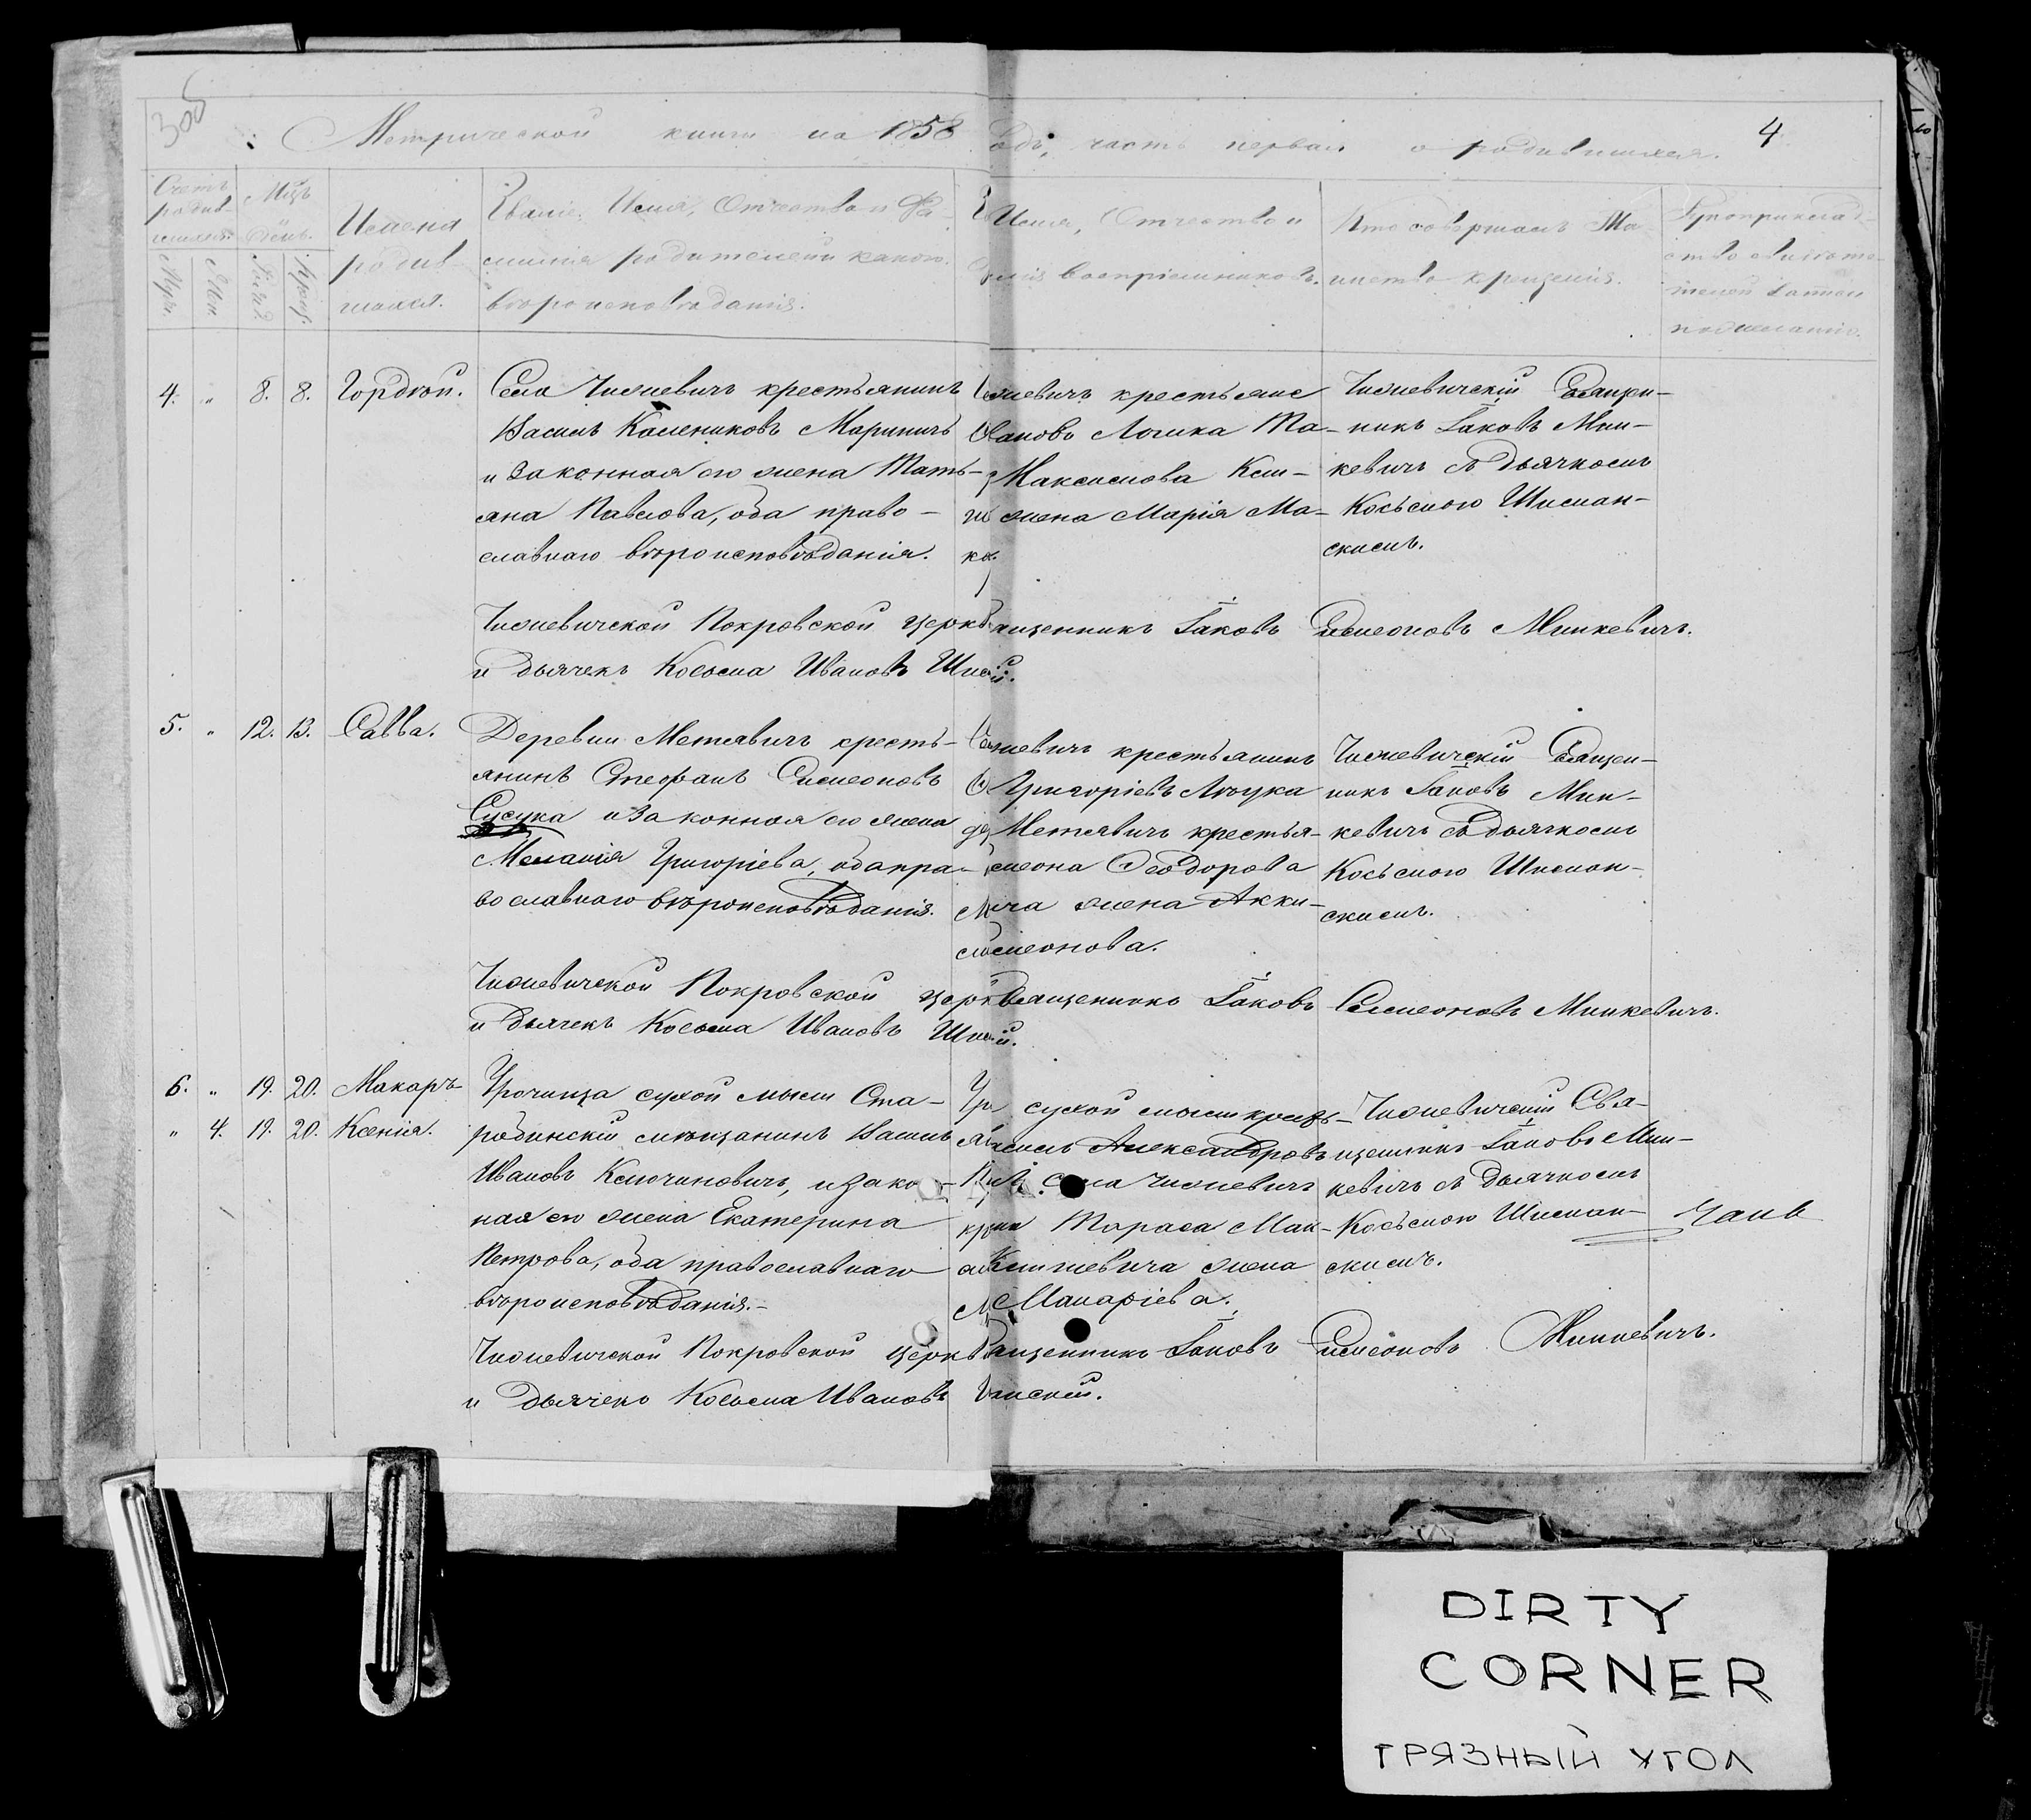 306
Метрической книги на 1858
Годъ, часть первая о родившихся.
4
Счетъ родив-
шихся.
Муж.
Жен.
Мцъ
и
День.
Рожд.
Крещ.
Имена
родив-
шихся.
Званіе, Имя, Отчество и Фа-
милія родителей и какого
вѣроисповѣданія.
Имя, Отчество и
воспріемниковъ.
Кто совершалъ Та-
инство крещенія.
Рукоприклад-
ство свидѣте-
телей записи
по желанію.
4. " 8. 8. Гордѣй.
Села Чижевичъ крестьянинъ
Василь Калениковъ Мариничъ
и законная его жена Тать-
яна Павлова, оба право-
славнаго вѣроисповѣданія.
жевичъ крестьянс
Ложка Та-
Максимова Кли-
жена Марія Ма-
Чижевичскій Священ-
никъ Іаковъ Мин-
кевичъ съ дьячкомъ
Косьмою Шиман-
скимъ.
Чижевичской Покровской церкв
священникъ Іаковъ Симеоновъ Минкевичъ.
и дьячекъ Косьма Ивановъ
5. " 12. 13. Савва.
Деревни Метявичъ кресть-
янинъ Стефанъ Симеоновъ
Сусука и законная его жена
Меланія Григоріева, оба пра-
вославнаго вѣроисповѣданія.
жевичъ крестьянинъ
Григоріевъ
Метявичъ крестья-
Ѳеодорова
жена Акки-
симеонова.
Чижевичскій Священ-
никъ Іаковъ Мин-
кевичъ съ дьячкомъ
Косьмою Шиман-
скимъ.
Чижевичской Покровской церкв
Священникъ Іаковъ Симеоновъ Минкевичъ.
и дьячекъ Косьма Ивановъ
6. " 19. 20. Макаръ
" 4. 19. 20. Ксенія.
Урочища сухой мыли Ста-
робинскій мѣщанинъ Василь
Ивановъ Ключиновичъ, и закон-
ная его жена Екатерина
Петрова, оба православнаго
вѣроисповѣданія.-
сухой мыли кресть-
Александровъ
села Чижевичъ
Тараса Мак-
Климкевича жена
Макаріева.
Чижевичскій Свя-
щенникъ Іаковъ Мин-
кевичъ съ дьячкомъ
Косьмою Шиман-
скимъ.
Чижевичской Покровской церкв
Священникъ Іаковъ Симеоновъ Минкевичъ.
и дьячекъ Косьма Ивановъ
DIRTY
CORNER
ГРЯЗНЫЙ УГОЛ